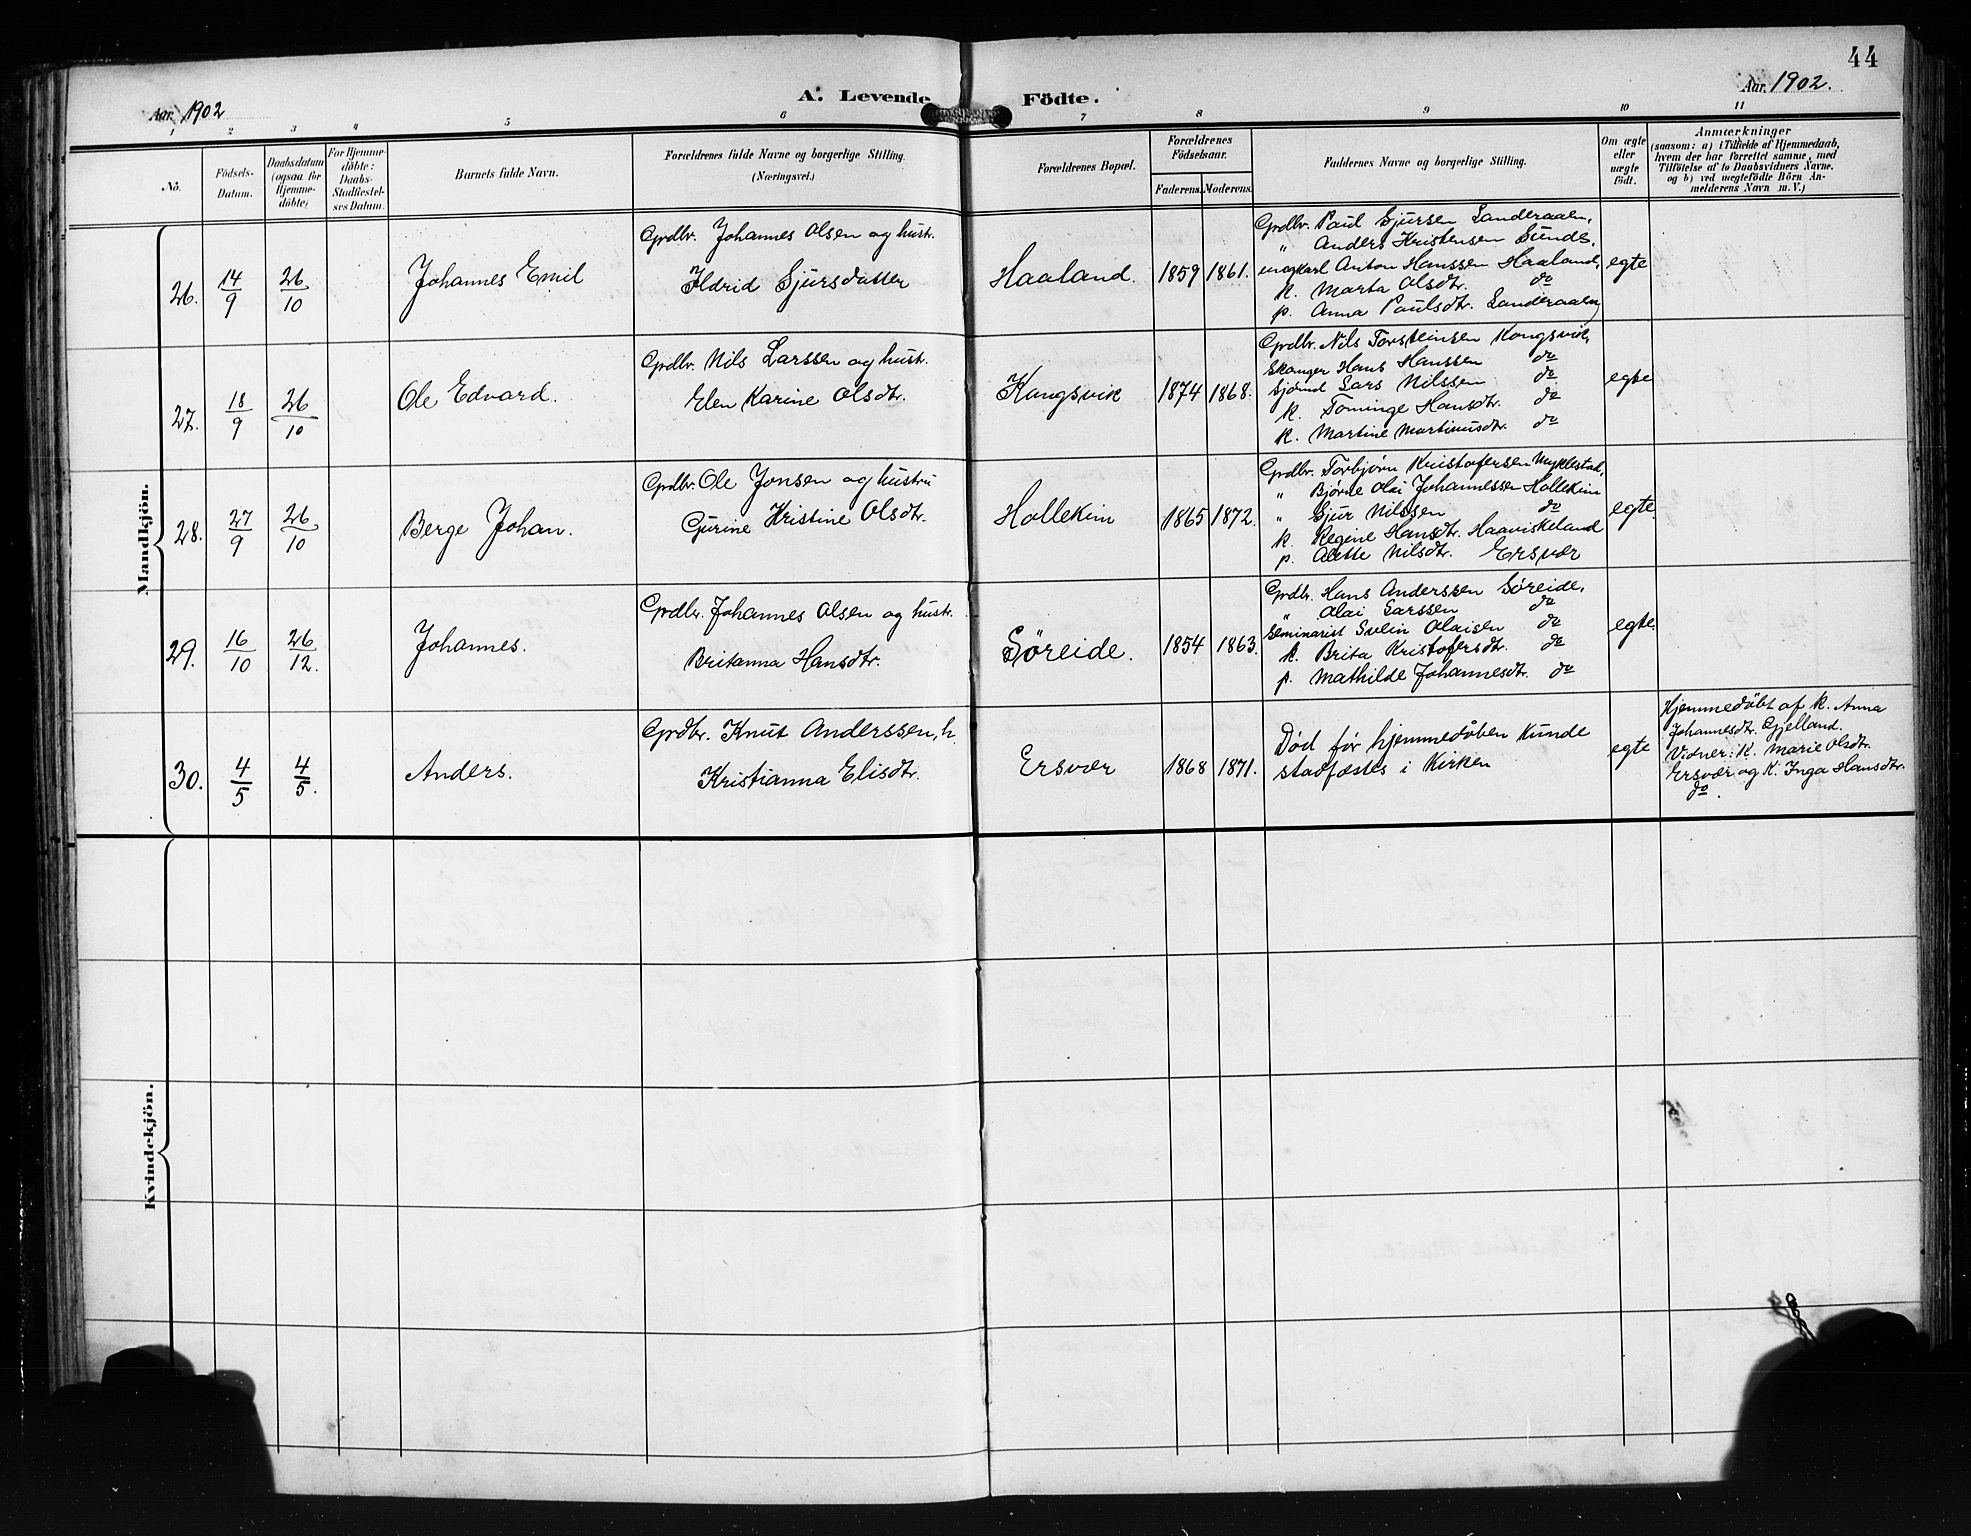 44
Aar 1902
A. Levende Födte.
Aar 1902.
1 2 3 4 5 6 7 8 9 10 11
No.
Födsels-Datum.
Daabsdatum (ogsaa for Hjemme-döbte)
For Hjemme-döbte: Daabs-Stadfæstel-ses Datum.
Barnets fulde Navn.
Forældrenes fulde Navne og borgerlige Stilling. (Næringsvei.)
Forældrenes Bopæl.
Forældrenes Födselsaar.
Faderens. Moderens.
Faddernes Navne og borgerlige Stilling.
Om ægte eller uægte födt.
Anmærkninger
(saasom: a) i Tilfælde af Hjemmedaab,
hvem der har forrettet samme, med
Tilföielse af to Daabsvidners Navne.
og b) ved uægtefödte Börn An-
melderens Navn m. V.)
Mandkjön.
26. 14/9 26/10 Johannes Emil
Grdbr. Johannes Olsen og hustr.
Ildrid Sjursdatter
Haaland. 1859 1861.
Grdbr. Paul Sjursen Sanderaaen,
" Anders Kristensen Sunde,
ungkarl Anton Hanssen Haaland,
k. Marta Olsdtr. do
p. Anna Paulsdtr. Sanderaaen
egte
27. 18/9 26/10 Ole Edvard.
Grdbr. Nils Larssen og hustr.
Elen Karine Olsdtr.
Kongsvik 1874 1868.
Grdbr. Nils Torsteinsen Kongsvik,
Skauger Hans Hanssen do
Sjömd Lars Nilssen do
k. Tominge Hansdtr. do
k. Martine Martinusdtr. do
egte
28. 27/9 26/10 Berge Johan.
Grdbr. Ole Jonsen og hustru
Gurine Kristine Olsdtr.
Hollekim 1865 1872.
Grdbr. Torbjørn Kristofersen Myklestad,
" Bjørne Olai Johannessen Hollekim
" Sjur Nilssen do
k. Regine Hansdtr. Haaviskeland
p. Alette Nilsdtr. Ersvær
egte.
29. 16/10 26/12. Johannes.
Grdbr. Johannes Olsen og hustr.
Britanna Hansdtr.
Søreide. 1854 1863.
Grdbr. Hans Anderssen Søreide,
" Olai Larssen do
Seminarist Svein Olaisen do
k. Brita Kristofersdtr. do
p. Mathilde Johannesdtr. do
egte.
30. 4/5 4/5. Anders.
Grdbr. Knut Anderssen, h.
Kristianna Elisdtr.
Ersvær 1868 1871.
Død før hjemmedåben kunde
stadfæstes i Kirken
egte
Hjemmedøbt af k. Anna
Johannesdtr. Gjelland.
Vidner: K. Marie Olsdtr.
Ersvær og K. Inga Hansdtr.
do.
Kvindekjön.